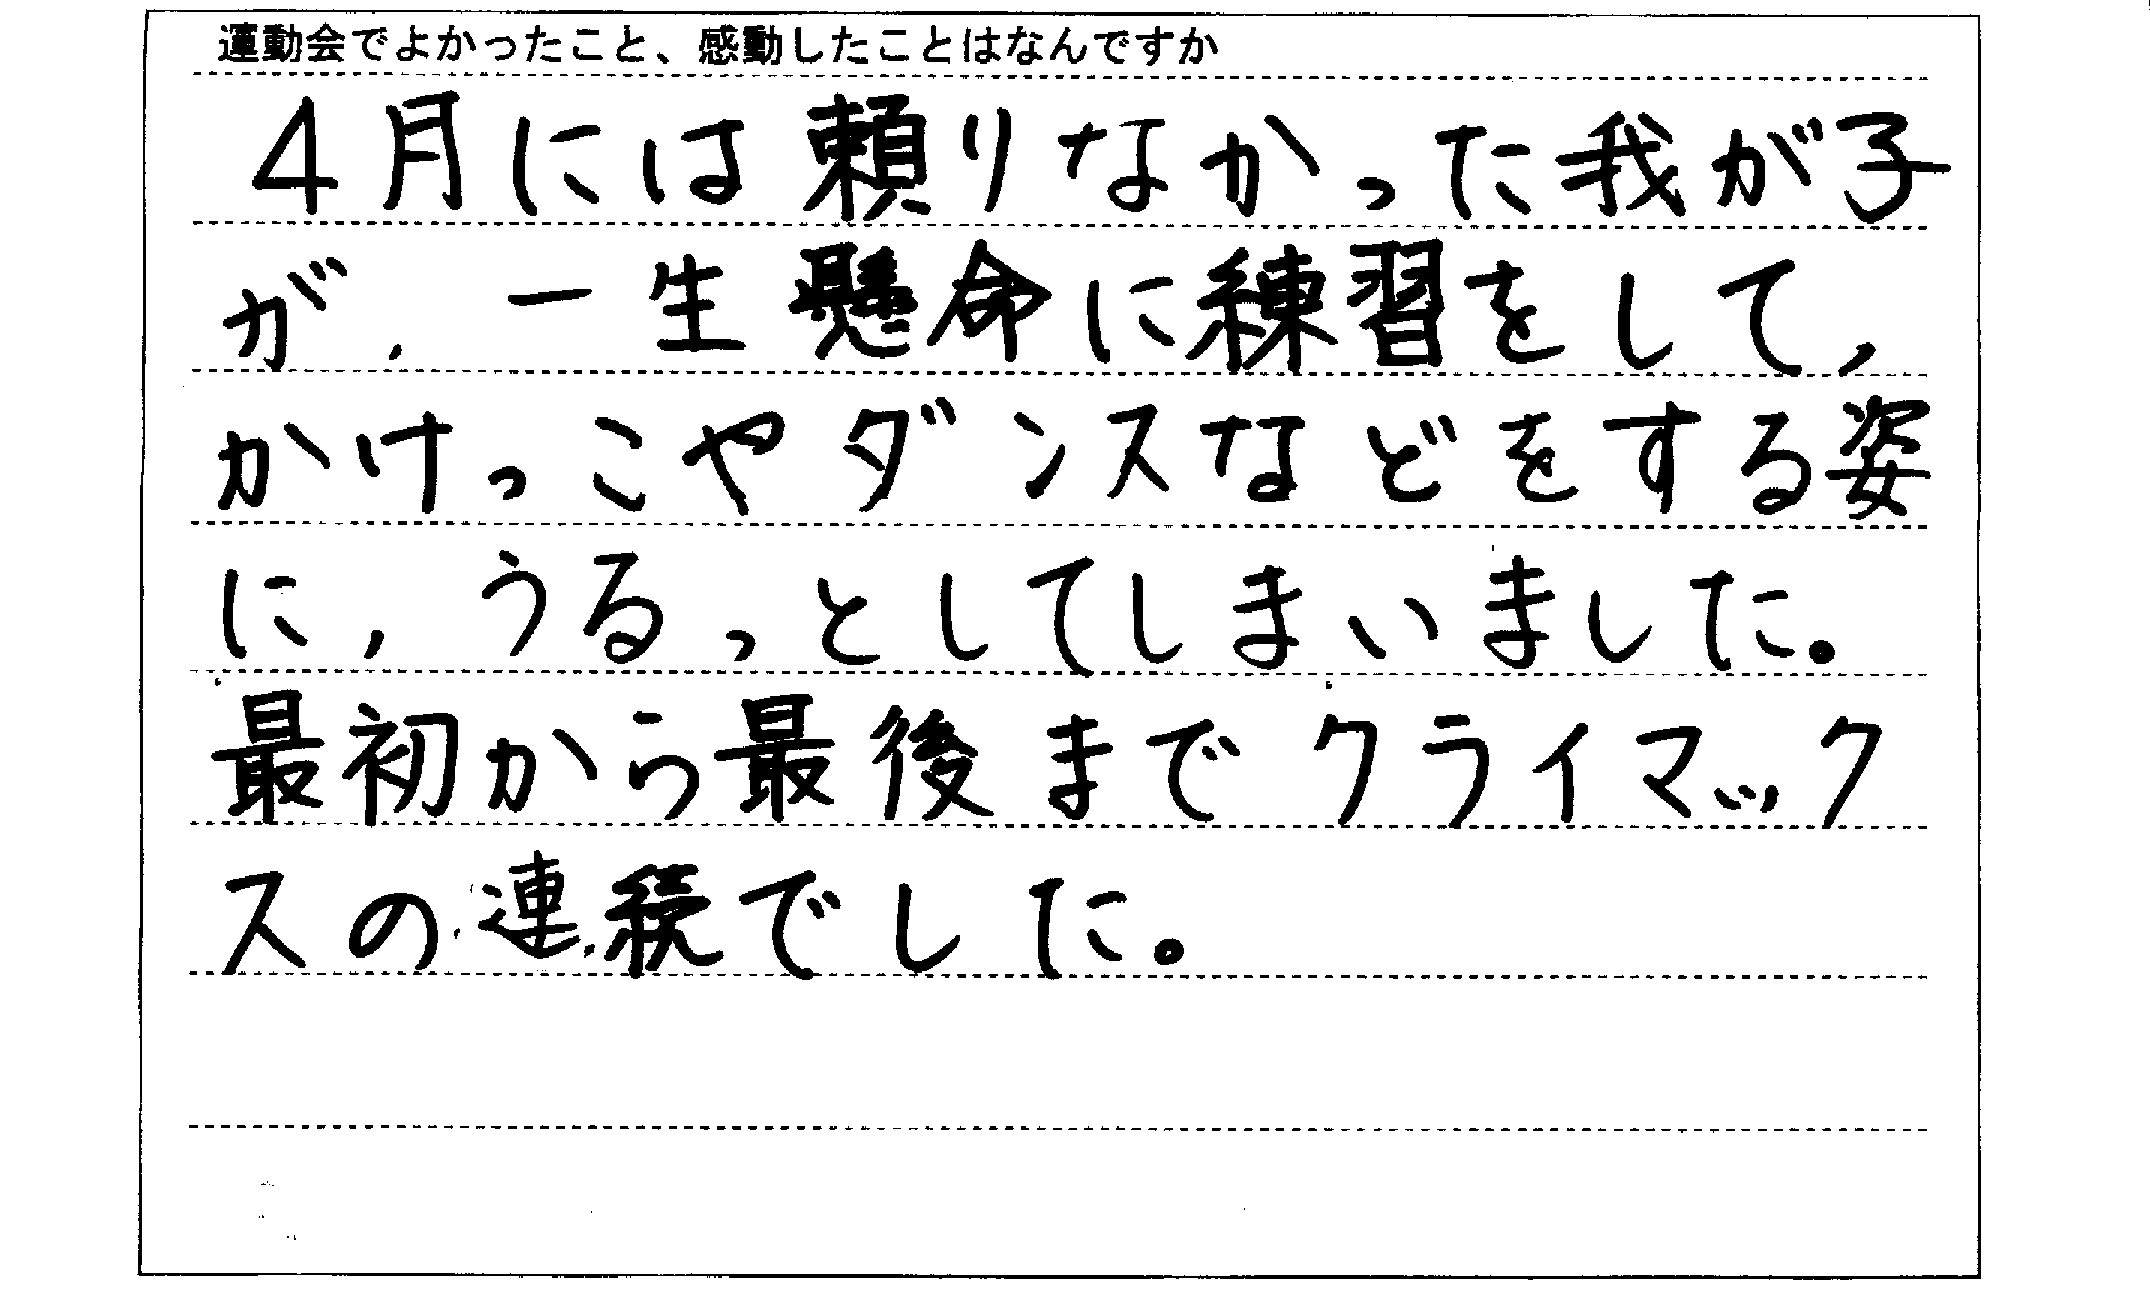 運動会でよかったこと、感動したことはなんですか
4月には頼りなかった我が子
が、一生懸命に練習をして、
かけっこやダンスなどをする姿
に、うるっとしてしまいました。
最初から最後までクライマック
スの連続でした。